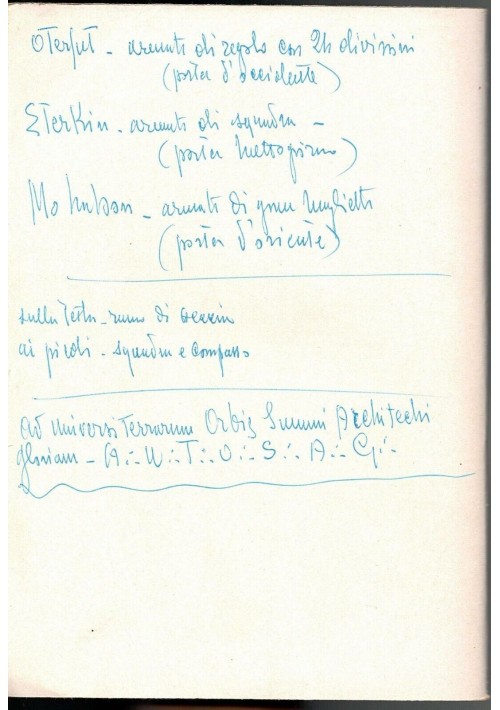 Oterfut - armato di regolo con 24 divisioni
(porta d'occidente)
Sterkin - armato di squadra -
(porta mezzogiorno)
Mohabon - armato di gran maglietto
(porta d'oriente)
sulla testa - ramo di acacia
ai piedi - squadra e compasso
Ad Universi Terrarum Orbis Summi Architecti
gloriam - A∴U∴T∴O∴S∴A∴G∴